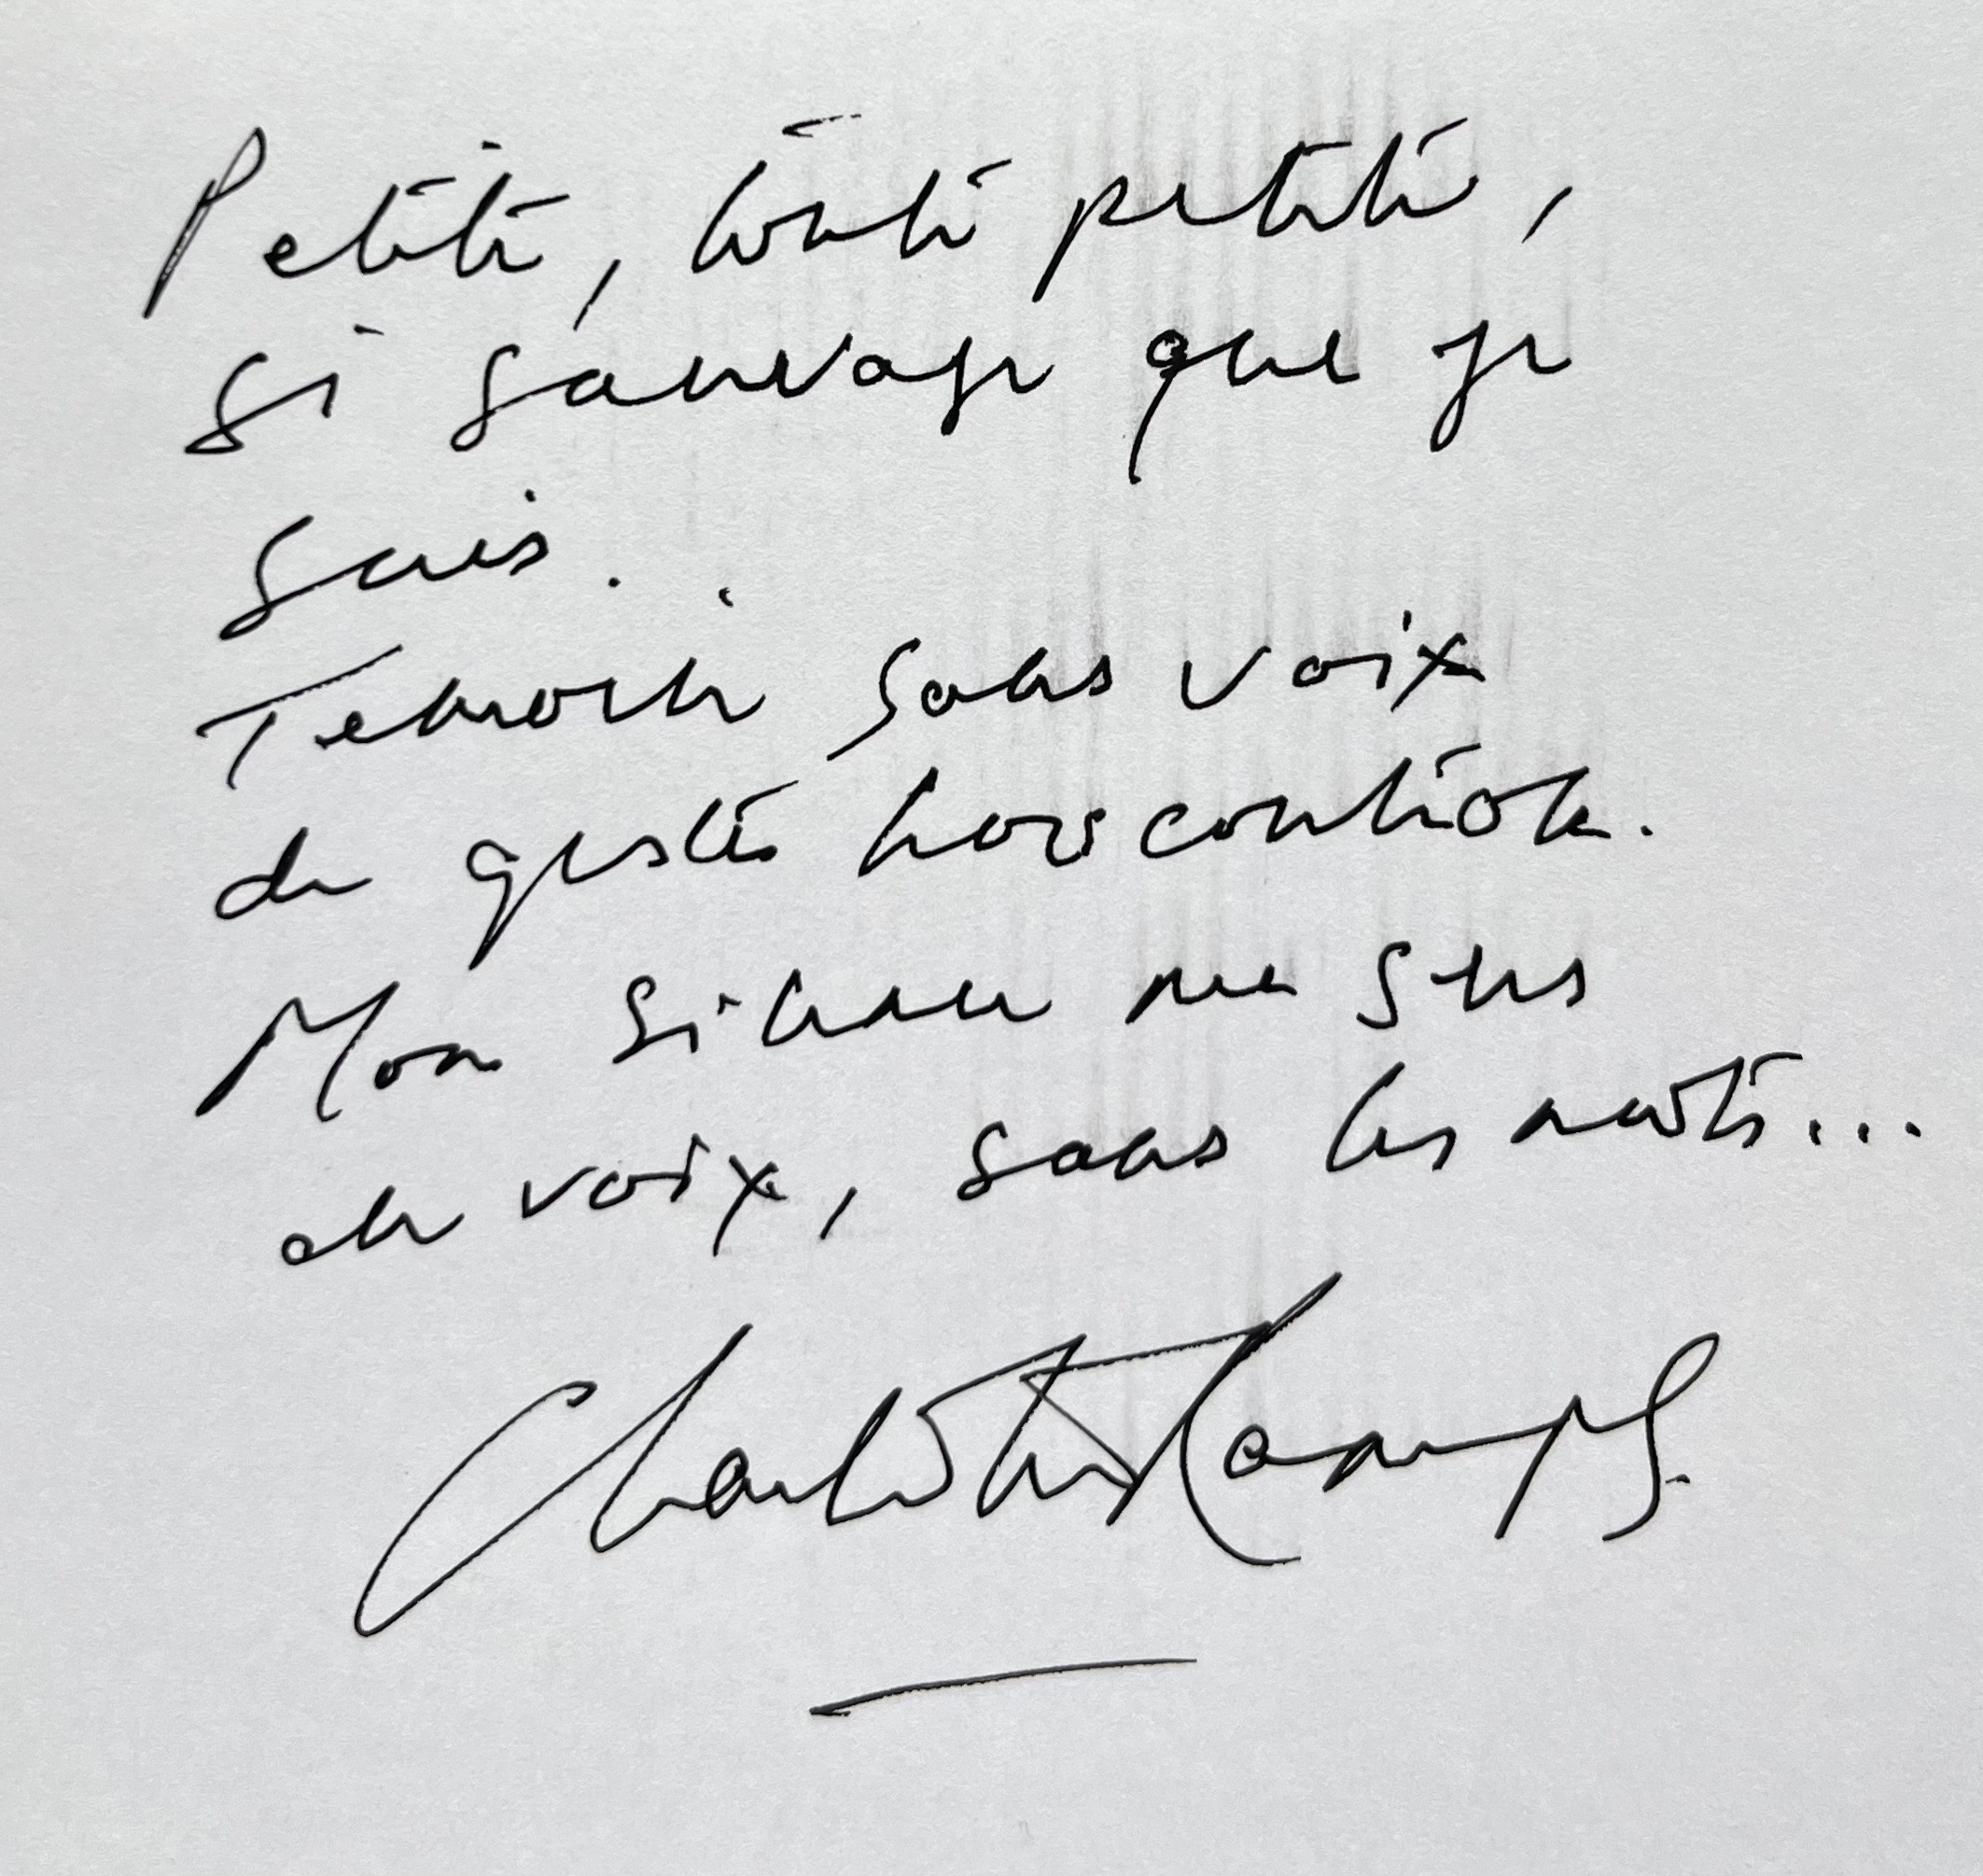 Petite, toute petite,
si sauvage que je
suis.
Temoin sans voix
de gestes hors contrôle.
Mon silence me sers
de voix, sans les mots...
Charlotte Rampling